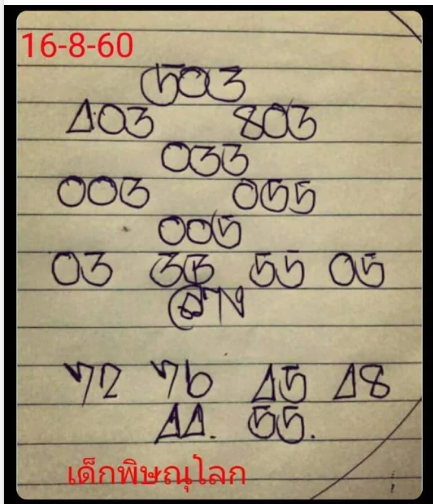 16-8-60
503
403 803
033
003 055
005
03 33 55 05
ล่าง
72 76 45 48
44. 55.
เด็กพิษณุโลก